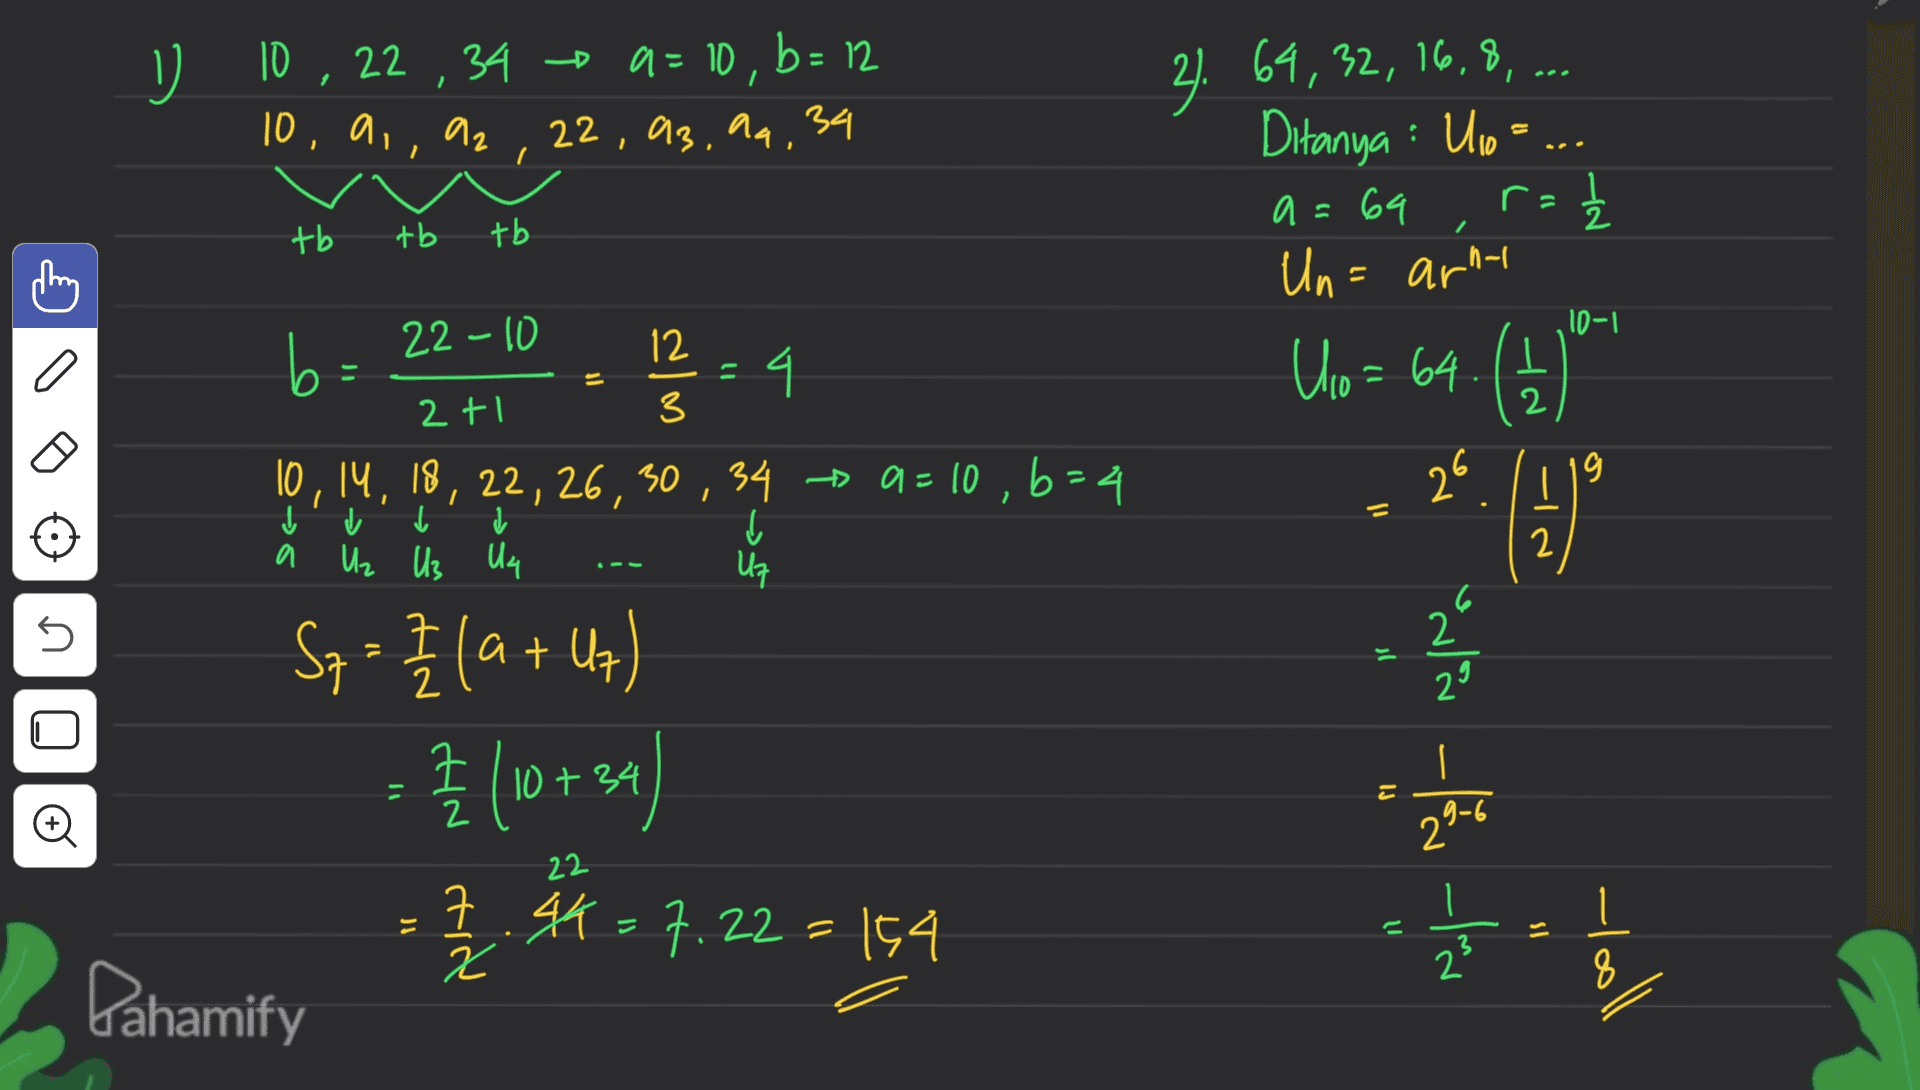 1) 10, 22, 34 → a = 10, b = 12
10, a₁, a₂, 22, a₃, a₄, 34
+b +b +b
b = (22 - 10)/(2 + 1) = 12/3 = 4
10, 14, 18, 22, 26, 30, 34 → a = 10, b = 4
a U₂ U₃ U₄ ... U₇
S₇ = 7/2 (a + U₇)
= 7/2 (10 + 34)
22
= 7/2 . 44 = 7.22 = 154
2). 64, 32, 16, 8, ...
Ditanya : U₁₀ = ...
a = 64, r = 1/2
Uₙ = arⁿ⁻¹
U₁₀ = 64 . (1/2)¹⁰⁻¹
= 2⁶ . (1/2)⁹
= 2⁶/2⁹
= 1/2⁹⁻⁶
= 1/2³ = 1/8
Pahamify